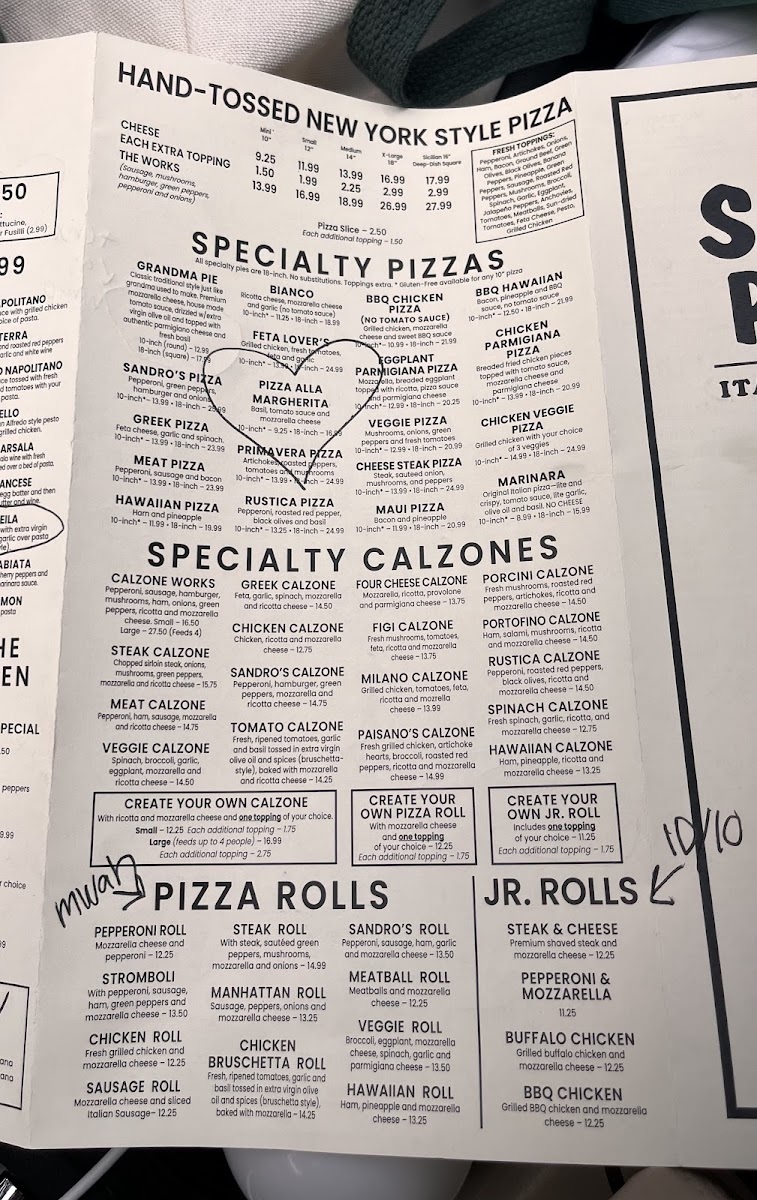 HAND-TOSSED NEW YORK STYLE PIZZA
Mini* 10"
Small 12"
Medium 14"
X-Large 18"
Sicilian 16" Deep-Dish Square
CHEESE 9.25 11.99 13.99 16.99 17.99
EACH EXTRA TOPPING 1.50 1.99 2.25 2.99 2.99
THE WORKS 13.99 16.99 18.99 26.99 27.99
(Sausage, mushrooms,
hamburger, green peppers,
pepperoni and onions)
FRESH TOPPINGS:
Pepperoni, Artichokes, Onions,
Ham, Bacon, Ground Beef, Green
Olives, Black Olives, Banana
Peppers, Pineapple, Green
Peppers, Sausage, Roasted Red
Peppers, Mushrooms, Broccoli,
Spinach, Garlic, Eggplant,
Jalapeño Peppers, Anchovies,
Tomatoes, Meatballs, Sun-dried
Tomatoes, Feta Cheese, Pesto,
Grilled Chicken
Pizza Slice – 2.50
Each additional topping – 1.50
SPECIALTY PIZZAS
All specialty pies are 18-inch. No substitutions. Toppings extra. * Gluten-Free available for any 10" pizza
GRANDMA PIE
Classic traditional style just like
grandma used to make. Premium
mozzarella cheese, house made
tomato sauce, drizzled w/extra
virgin olive oil and topped with
authentic parmigiano cheese and
fresh basil
10-inch (round) – 12.99
18-inch (square) – 17.99
SANDRO'S PIZZA
Pepperoni, green peppers,
hamburger and onions
10-inch* – 13.99 • 18-inch – 25.99
GREEK PIZZA
Feta cheese, garlic and spinach,
10-inch* – 13.99 • 18-inch – 23.99
MEAT PIZZA
Pepperoni, sausage and bacon
10-inch* – 13.99 • 18-inch – 23.99
HAWAIIAN PIZZA
Ham and pineapple
10-inch* – 11.99 • 18-inch – 19.99
BIANCO
Ricotta cheese, mozzarella cheese
and garlic (no tomato sauce)
10-inch* – 11.25 • 18-inch – 18.99
FETA LOVER'S
Grilled chicken, fresh tomatoes,
feta and garlic
10-inch* – 13.99 • 18-inch – 24.99
PIZZA ALLA
MARGHERITA
Basil, tomato sauce and
mozzarella cheese
10-inch* – 9.25 • 18-inch – 16.99
PRIMAVERA PIZZA
Artichokes, roasted peppers,
tomatoes and mushrooms
10-inch* – 13.99 • 18-inch – 24.99
RUSTICA PIZZA
Pepperoni, roasted red pepper,
black olives and basil
10-inch* – 13.25 • 18-inch – 24.99
BBQ CHICKEN
PIZZA
(NO TOMATO SAUCE)
Grilled chicken, mozzarella
cheese and sweet BBQ sauce
10-inch* – 10.99 • 18-inch – 21.99
EGGPLANT
PARMIGIANA PIZZA
Mozzarella, breaded eggplant
topped with ricotta, pizza sauce
and parmigiana cheese
10-inch* – 12.99 • 18-inch – 20.25
VEGGIE PIZZA
Mushrooms, onions, green
peppers and fresh tomatoes
10-inch* – 12.99 • 18-inch – 20.99
CHEESE STEAK PIZZA
Steak, sauteed onion,
mushrooms, and peppers
10-inch* – 13.99 • 18-inch – 24.99
MAUI PIZZA
Bacon and pineapple
10-inch* – 11.99 • 18-inch – 20.99
BBQ HAWAIIAN
Bacon, pineapple and BBQ
sauce, no tomato sauce
10-inch* – 12.50 • 18-inch – 21.99
CHICKEN
PARMIGIANA
PIZZA
Breaded fried chicken pieces
topped with tomato sauce,
mozzarella cheese and
parmigiana cheese
10-inch* – 13.99 • 18-inch – 20.99
CHICKEN VEGGIE
PIZZA
Grilled chicken with your choice
of 3 veggies
10-inch* – 14.99 • 18-inch – 24.99
MARINARA
Original Italian pizza—lite and
crispy, tomato sauce, lite garlic,
olive oil and basil. NO CHEESE
10-inch* – 8.99 • 18-inch – 15.99
SPECIALTY CALZONES
CALZONE WORKS
Pepperoni, sausage, hamburger,
mushrooms, ham, onions, green
peppers, ricotta and mozzarella
cheese. Small – 16.50
Large – 27.50 (Feeds 4)
STEAK CALZONE
Chopped sirloin steak, onions,
mushrooms, green peppers,
mozzarella and ricotta cheese – 15.75
MEAT CALZONE
Pepperoni, ham, sausage, mozzarella
and ricotta cheese – 14.75
VEGGIE CALZONE
Spinach, broccoli, garlic,
eggplant, mozzarella and
ricotta cheese – 14.50
GREEK CALZONE
Feta, garlic, spinach, mozzarella
and ricotta cheese – 14.50
CHICKEN CALZONE
Chicken, ricotta and mozzarella
cheese – 12.75
SANDRO'S CALZONE
Pepperoni, hamburger, green
peppers, mozzarella and
ricotta cheese – 14.75
TOMATO CALZONE
Fresh, ripened tomatoes, garlic
and basil tossed in extra virgin
olive oil and spices (bruschetta-
style), baked with mozzarella
and ricotta cheese – 14.25
FOUR CHEESE CALZONE
Mozzarella, ricotta, provolone
and parmigiana cheese – 13.75
FIGI CALZONE
Fresh mushrooms, tomatoes,
feta, ricotta and mozzarella
cheese – 13.75
MILANO CALZONE
Grilled chicken, tomatoes, feta,
ricotta and mozrella
cheese – 13.99
PAISANO'S CALZONE
Fresh grilled chicken, artichoke
hearts, broccoli, roasted red
peppers, ricotta and mozzarella
cheese – 14.99
PORCINI CALZONE
Fresh mushrooms, roasted red
peppers, artichokes, ricotta and
mozzarella cheese – 14.50
PORTOFINO CALZONE
Ham, salami, mushrooms, ricotta
and mozzarella cheese – 14.50
RUSTICA CALZONE
Pepperoni, roasted red peppers,
black olives, ricotta and
mozzarella cheese – 14.50
SPINACH CALZONE
Fresh spinach, garlic, ricotta, and
mozzarella cheese – 12.75
HAWAIIAN CALZONE
Ham, pineapple, ricotta and
mozzarella cheese – 13.25
CREATE YOUR OWN CALZONE
With ricotta and mozzarella cheese and one topping of your choice.
Small – 12.25 Each additional topping – 1.75
Large (feeds up to 4 people) – 16.99
Each additional topping – 2.75
CREATE YOUR
OWN PIZZA ROLL
With mozzarella cheese
and one topping
of your choice – 12.25
Each additional topping – 1.75
CREATE YOUR
OWN JR. ROLL
Includes one topping
of your choice – 11.25
Each additional topping – 1.75
mwah
PIZZA ROLLS
PEPPERONI ROLL
Mozzarella cheese and
pepperoni – 12.25
STROMBOLI
With pepperoni, sausage,
ham, green peppers and
mozzarella cheese – 13.50
CHICKEN ROLL
Fresh grilled chicken and
mozzarella cheese – 12.25
SAUSAGE ROLL
Mozzarella cheese and sliced
Italian Sausage– 12.25
STEAK ROLL
With steak, sautéed green
peppers, mushrooms,
mozzarella and onions – 14.99
MANHATTAN ROLL
Sausage, peppers, onions and
mozzarella cheese – 13.25
CHICKEN
BRUSCHETTA ROLL
Fresh, ripened tomatoes, garlic and
basil tossed in extra virgin olive
oil and spices (bruschetta style),
baked with mozzarella – 14.25
SANDRO'S ROLL
Pepperoni, sausage, ham, garlic
and mozzarella cheese – 13.50
MEATBALL ROLL
Meatballs and mozzarella
cheese – 12.25
VEGGIE ROLL
Broccoli, eggplant, mozzarella
cheese, spinach, garlic and
parmigiana cheese – 13.50
HAWAIIAN ROLL
Ham, pineapple and mozzarella
cheese – 13.25
10/10
JR. ROLLS
STEAK & CHEESE
Premium shaved steak and
mozzarella cheese – 12.25
PEPPERONI &
MOZZARELLA
11.25
BUFFALO CHICKEN
Grilled buffalo chicken and
mozzarella cheese – 12.25
BBQ CHICKEN
Grilled BBQ chicken and mozzarella
cheese – 12.25